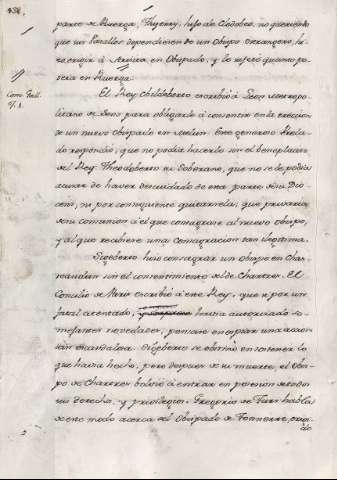 parte de Ruerga, Thyerry, hijo de Clodoveo, no queriendo
que sus Vasallos dependiesen de un Obispo estrangero, hi-
zo erigir à en Obispado, y le sujetó quanto po-
seia en Ruerga.
El Rey Childeberto escribió à Leon Metropo-
litano de Sens para obligarle à consentir en la ereccion
de un nuevo Obispado en Melun. Este generoso Prela-
do respondió, que no podia hacerlo sin el beneplacito
del Rey Theodoberto su Soberano, que no se le podia
acusar de haver descuidado de esta parte de su Dio-
cesis, y por consiguiente que privaria
de su comunion à el que consagrase al nuevo Obispo,
y al que recibiese una consagracion tan ilegitima.
Sigeberto hizo consagrar un Obispo en Cha-
teaudun sin el consentimiento del de Chartres. El
Concilio de escribió à este Rey, que si por un
fatal atentado, havia autorizado se-
mejantes novedades, pensase en expiar una accion
tan escandalosa. Sigeberto se obstinó en sostener lo
que havia hecho, pero despues de su muerte, el Obis-
po de Chartres bolvió à entrar en posesion de todos
sus derechos, y privilegios. Gregorio de Turs habla
de este modo acerca del Obispado de Tonnerre,